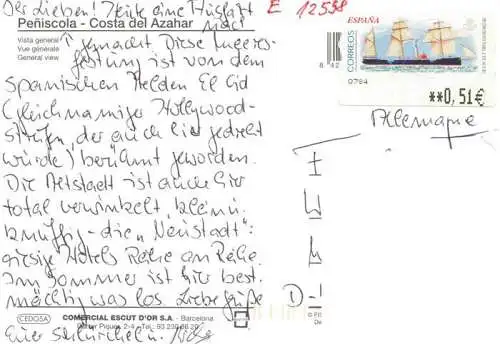 Ihr Lieben! Heute eine Ausfahrt nach
E 12538
Peñiscola - Costa del Azahar
Vista general
Vue générale
General view
gemacht. Diese Meeres-
festung ist von dem
spanischen Helden El Cid
(Gleichnamiger Hollywood-
streifen, der auch hier gedreht
wurde) berühmt geworden.
Die Altstadt ist auch hier
total verwinkelt, klein u.
knuffig - die "Neustadt":
riesige Hotels Reihe an Reihe.
Im Sommer ist hier best.
mächtig was los. Liebe Grüße
Euer
CEDOSA
COMERCIAL ESCUT D'OR S.A. - Barcelona
Piquer, 2-4 - Tel. 93
ESPAÑA
CORREOS
0784
**0,51€
Allemagne
D-